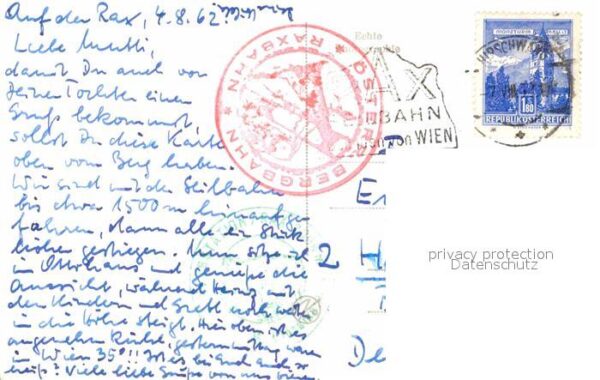 Auf der Rax, 4.8.62
Liebe Mutti,
damit Du auch von
Deiner Tochter einen
Gruß bekommst,
sollst Du diese Karte
oben vom Berg haben.
Wir sind mit der Seilbahn
bis etwa 1500 m hinaufge-
fahren, dann alle ein Stück
höher gestiegen. Nun sitze ich
im Ottohaus und genieße die
Aussicht, während Heinz mit
den Kindern und noch weiter
in die Höhe steigt. Hier oben ist es
angenehm kühl, gestern mittag waren
in Wien 35°!! Ist es bei Euch auch so
heiß? Viele liebe Grüße von uns vieren
RAXBAHN * ÖSTERR. BERGBAHN *
Echte
AX
BAHN
von WIEN
HIRSCHWANG
1.80
REPUBLIK ÖSTERREICH
E
2 H
De
privacy protection
Datenschutz